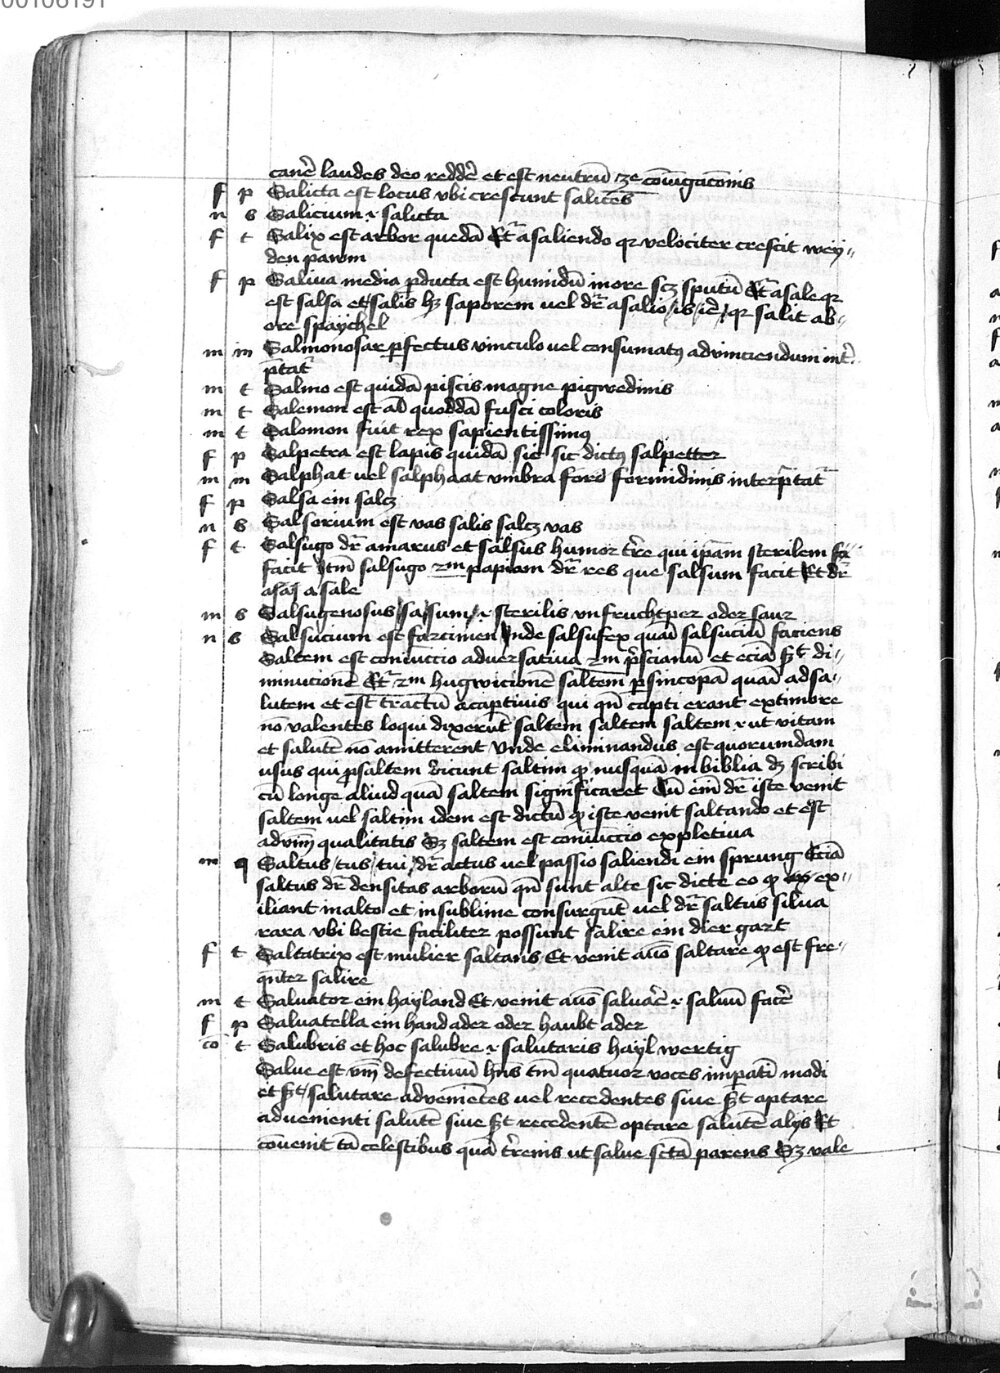 00106191
canẽ laudes deo reddẽ et est neutrũ ꝛc̃ coniugacionis
f p Salicta est locus vbi crescunt salices
n s Salicium .i. salicta
f t Salix est arbor quedã Et ̃ a saliendo qꝛ velociter crescit wey-
den pawm
f p Saliua media ꝓducta est humidũ in ore scꝫ sputũ Et ̃ a sale qꝛ
est salsa et salis hꝫ saporem vel dr̃ a salio is iẽ qꝛ salit ab
ore spaychel
m m Salmonosar ꝑfectus vinculo vel consumatꝰ ad vinciendum intꝰ
p̃tat̃
m t Salmo est quidã piscis magne pigwedinis
m t Salemon est aĩal quoddã fusci coloris
m t Salomon fuit rex sapientissimꝰ
f p Salpetra est lapis quidã sic sic dictꝰ salpetter
m m Salphat vel salphaat vmbra formidinis interp̃tat̃
f p Salsa ein salcz
n s Salsorium est vas salis salcz vas
f t Salsugo dr̃ amarus et salsus humor tr̃e qui ip̃am sterilem
facit Itm̃ salsugo ẜm papiam dr̃ res que salsum facit Et dr̃
a sale
m s Salsugenosus sa sum .i. sterilis vnfruchtper oder saur
n s Salsucium est farcimen Inde salsufex quasi salsuciũ faciens
Saltem est coniunccio aduersatiua ẜm p̃scianũ et eciã ẜt di-
minucionẽ Et ̃ ẜm hugwicionẽ saltem ꝑ sincopã quasi ad sa-
lutem et est tractũ a captiuis qui qñ capti erant ex timore
nõ valentes loqui dixerũt saltem saltem saltem .i. ut vitam
et salutẽ nõ amitterent Vnde eliminandus est quorumdam
usus qui ꝑ saltem dicunt saltim ꝙ nusquã in biblia dꝫ scribi
cũ longe aliud quã saltem significaret Cũ eni͂ dr̃ iste venit
saltem vel saltim idem est dictũ ꝙ iste venit saltando et est
aduim̃ qualitatis Sꝫ saltem est coniunccio expletiua
m q Saltus tus tui dr̃ actus vel passio saliendi ein sprung Eciã
saltus dr̃ densitas arborũ qñ sunt alte sic dicte eo ꝙ ex-
iliant in alto et in sublime consurgũt vel dr̃ saltus silua
rara vbi bestie faciliter possunt salire ein dier gart
f t Saltatrix est mulier saltans Et venit a vͦ saltare ꝙ est fre-
quẽter salire
m t Saluator ein hayland Et venit a vͦ saluãre .i. saluũ facẽ
f p Saluatella ein hand ader oder haubt ader
co t Salubris et hoc salubre .i. salutaris hayl wertig
Salue est vm̃ defectiuũ hñs tm̃ quatuor voces imp̃ati͂ modi
et ẜt salutare aduenientes vel recedentes siue ẜt optare
aduenienti salutẽ siue ẜt recedentẽ optare salutẽ alijs Et
cõuenit tã celestibus quã tr̃enis ut salue sctã parens Sꝫ vale